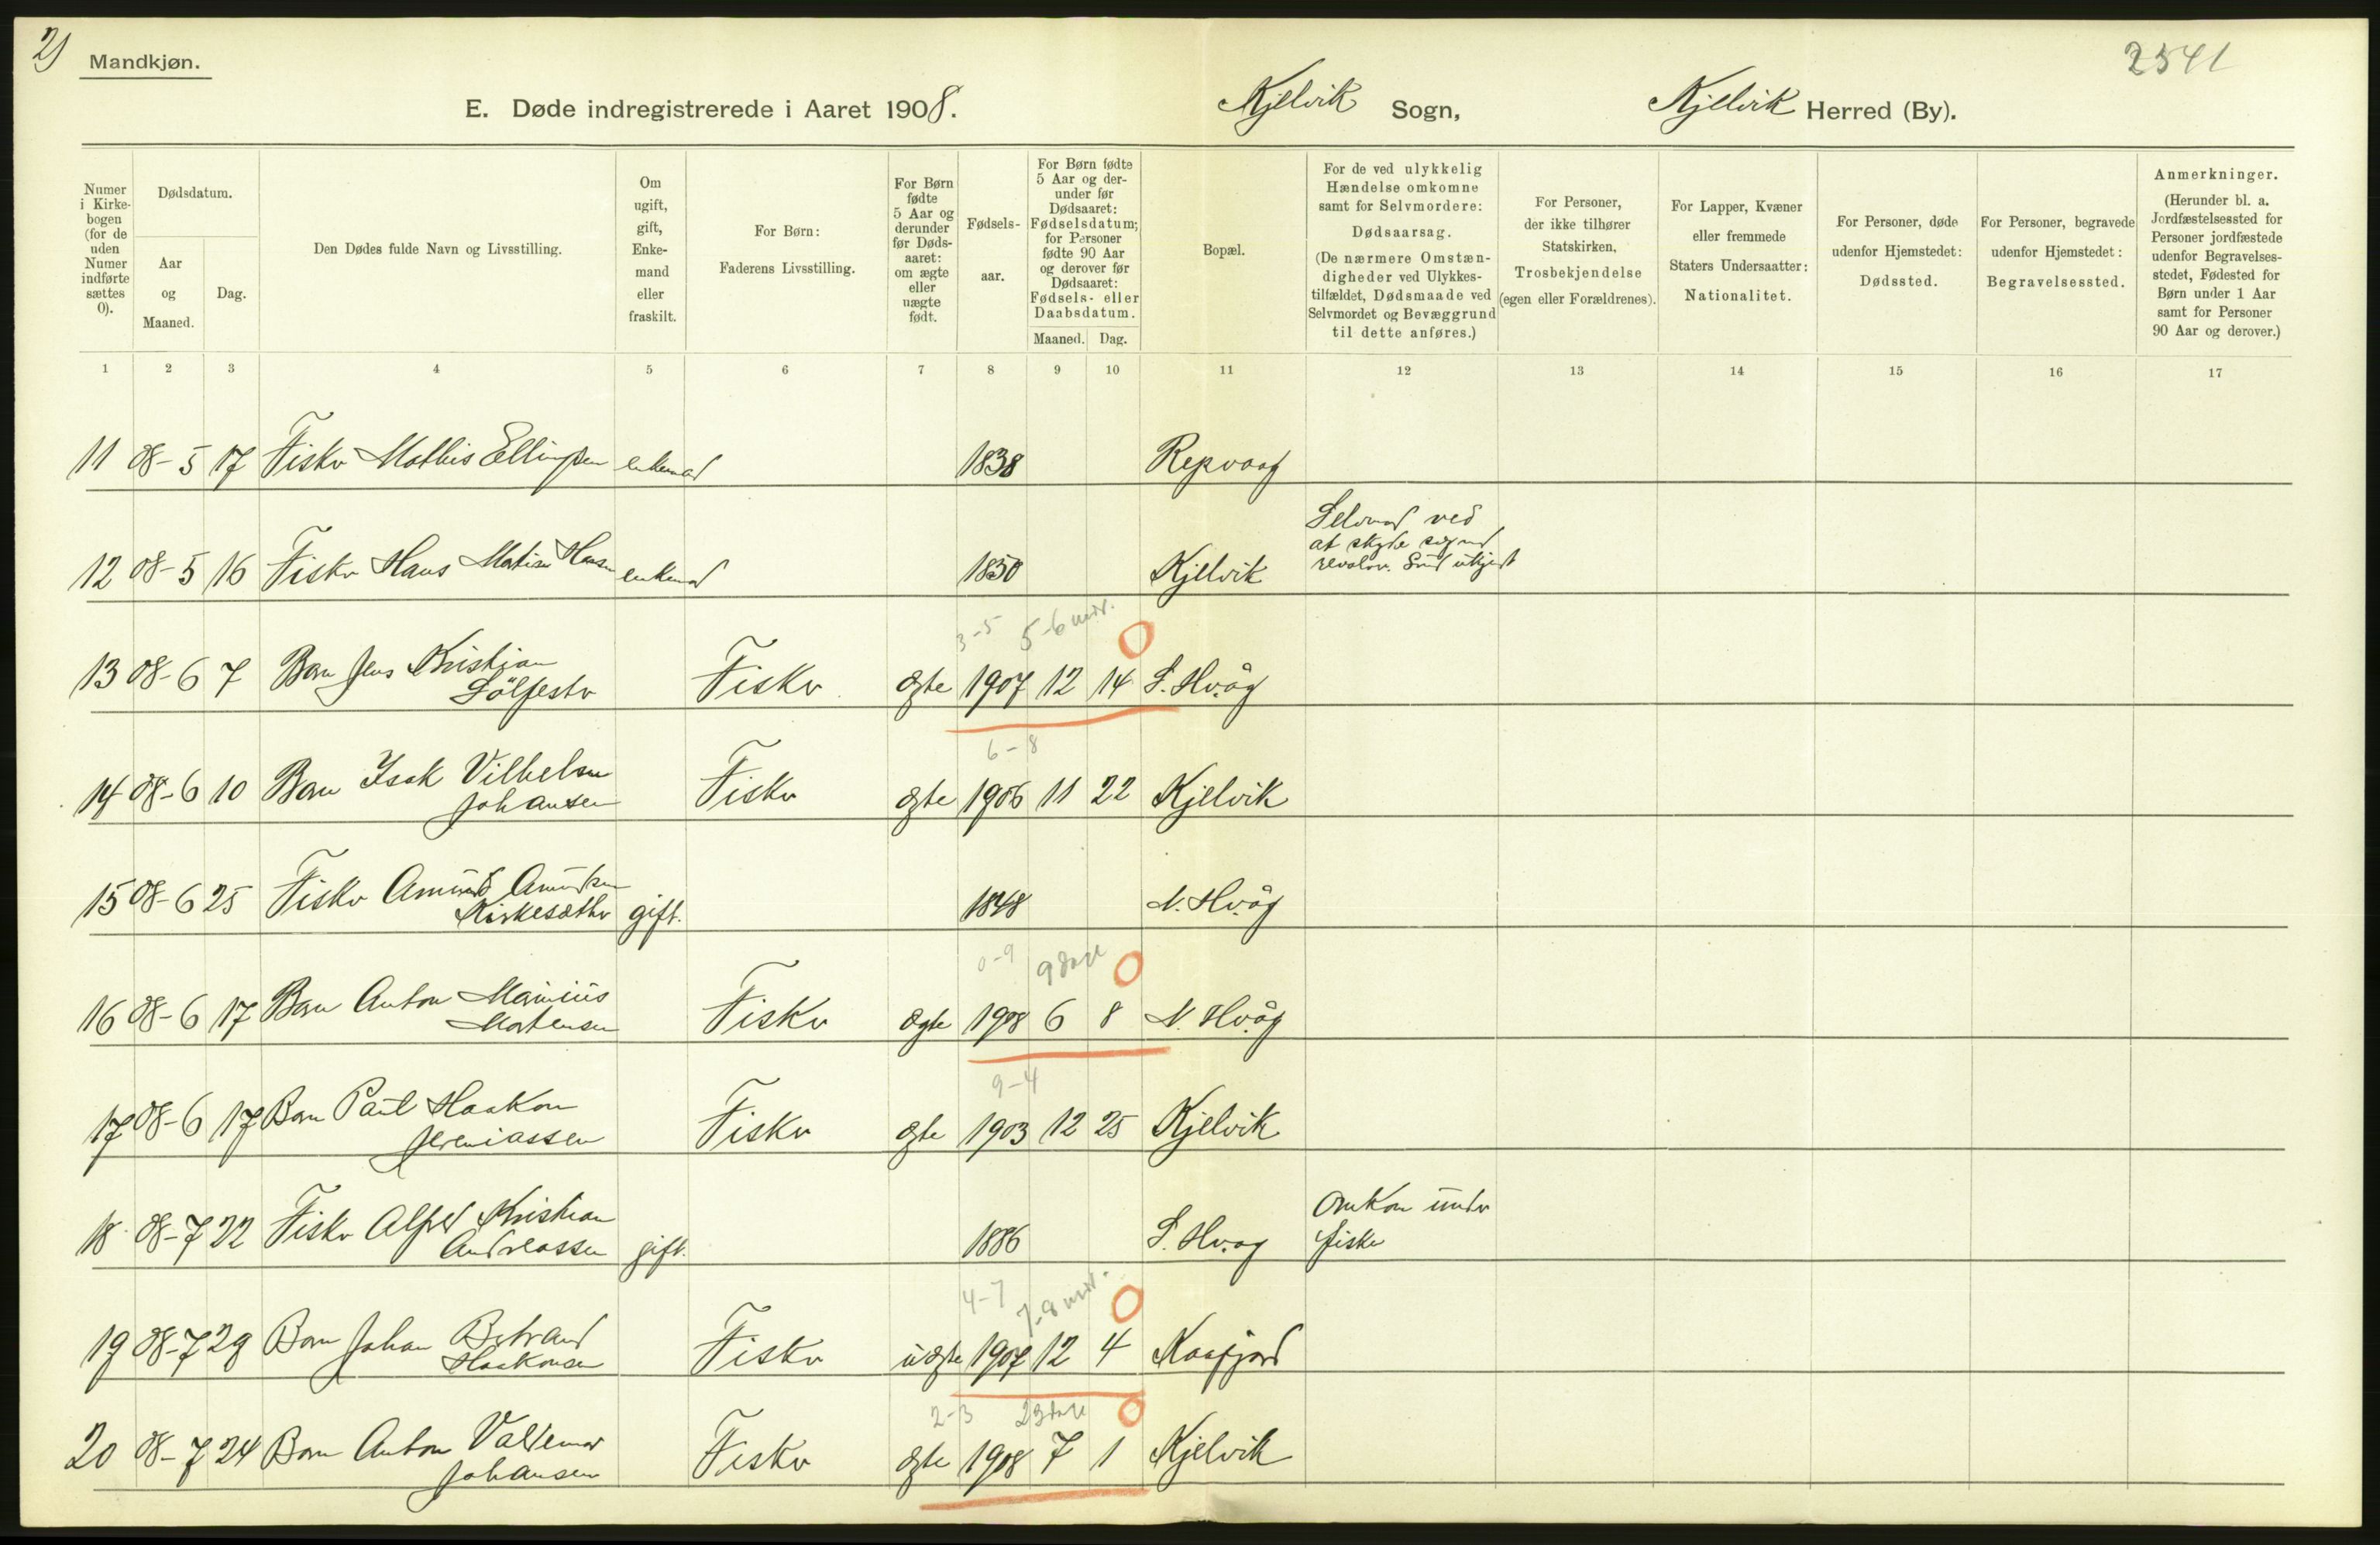 2)
Mandkjøn.
2541
E. Døde indregistrerede i Aaret 1908.
Kjelvik Sogn,
Kjelvik Herred (By).
Numer i Kirkebogen (for de uden Numer indførte sættes 0).
Dødsdatum.
Aar og Maaned.
Dag.
Den Dødes fulde Navn og Livsstilling.
Om ugift, gift, Enkemand eller fraskilt.
For Børn:
Faderens Livsstilling.
For Børn fødte 5 Aar og derunder før Dødsaaret: om ægte eller uægte født.
Fødselsaar.
For Børn fødte 5 Aar og derunder før Dødsaaret: Fødselsdatum; for Personer fødte 90 Aar og derover før Dødsaaret: Fødsels- eller Daabsdatum.
Maaned. Dag.
Bopæl.
For de ved ulykkelig Hændelse omkomne samt for Selvmordere:
Dødsaarsag.
(De nærmere Omstændigheder ved Ulykkestilfældet, Dødsmaade ved Selvmordet og Bevæggrund til dette anføres.)
For Personer, der ikke tilhører Statskirken,
Trosbekjendelse
(egen eller Forældrenes).
For Lapper, Kvæner eller fremmede Staters Undersaatter:
Nationalitet.
For Personer, døde udenfor Hjemstedet:
Dødssted.
For Personer, begravede udenfor Hjemstedet:
Begravelsessted.
Anmerkninger.
(Herunder bl. a. Jordfæstelsessted for Personer jordfæstede udenfor Begravelsesstedet, Fødested for Børn under 1 Aar samt for Personer 90 Aar og derover.)
1 2 3 4 5 6 7 8 9 10 11 12 13 14 15 16 17
11 08-5 17 Fisker Mathis Ellingsen enkemand 1838 Repvaag
12 08-5 16 Fisker Hans Hansen enkemand 1850 Kjelvik Selvmord ved
at skyde sig med
revolver.
3-5 5-6 mdr.
13 08-6 7 Barn Jens Kristian
Fisker ægte 1907 12 14 S. Hv.åg
6-8
14 08-6 10 Barn Isak Vilhelm
Johansen Fisker ægte 1906 11 22 Kjelvik
15 08-6 25 Fisker Amund Amundsen
Kirkesæther gift. 1848 N. Hv.åg
0-9 9 dage
16 08-6 17 Barn Anton
Mortensen Fisker ægte 1908 6 8 N. Hv.åg
9-4
17 08-6 17 Barn Paul Haakon
Jeremiassen Fisker ægte 1903 12 25 Kjelvik
18 08-7 22 Fisker Alfred Kristian
Andreassen gift. 1886 S. Hv.ag Omkom under
fiske
4-7 7-8 mdr.
19 08-7 29 Barn Johan
Haakonsen Fisker uægte 1907 12 4 Kaafjord
2-3 23 dage
20 08-7 24 Barn Anton Valdemar
Johansen Fisker ægte 1908 7 1 Kjelvik